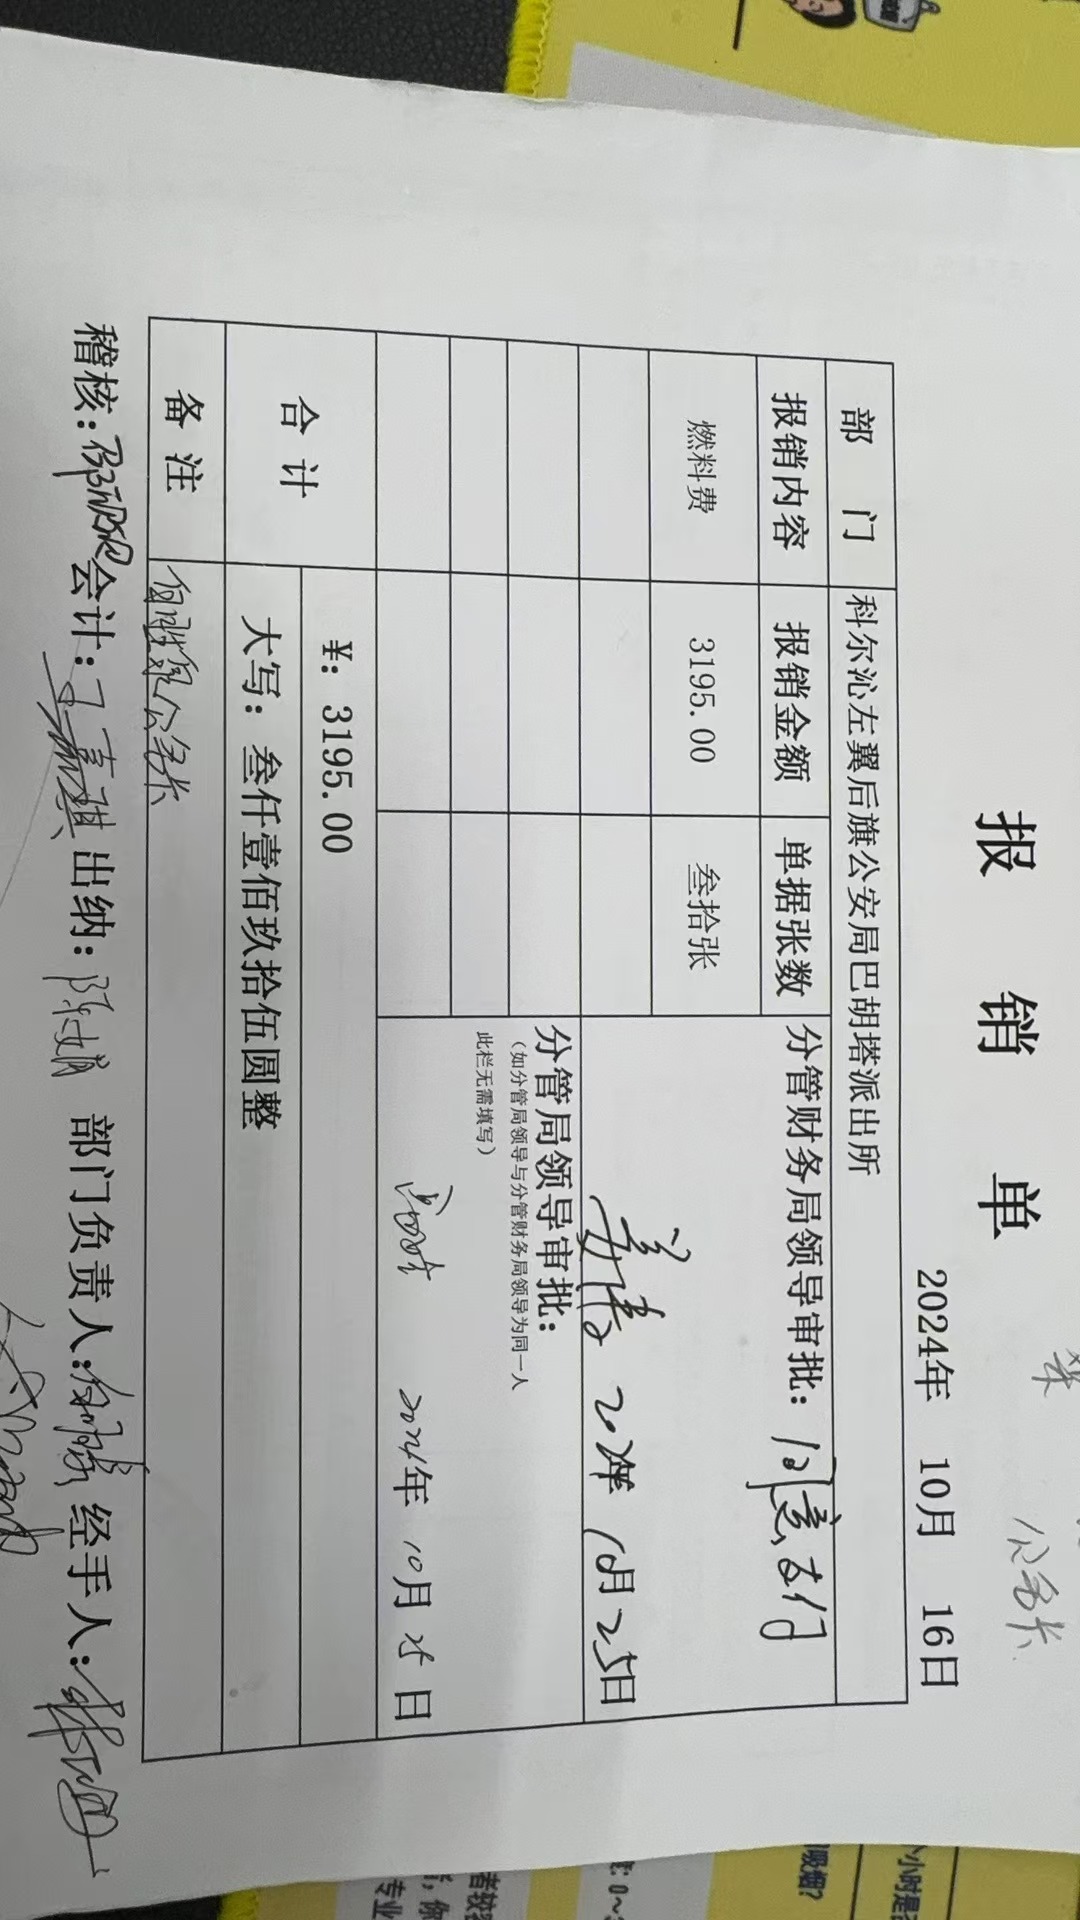 报 销 单
2024年 10月 16日
部 门 科尔沁左翼后旗公安局巴胡塔派出所
报销内容 报销金额 单据张数 分管财务局领导审批：同意支付
燃料费 3195.00 叁拾张
2024年 10月 25日
分管局领导审批：
（如分管局领导与分管财务局领导为同一人
此栏无需填写）
2024年 10月 25日
合 计 ¥：3195.00
大写：叁仟壹佰玖拾伍圆整
备 注 公务卡
稽核： 会计： 出纳： 部门负责人： 经手人：
公务卡
个小时是
吸烟？